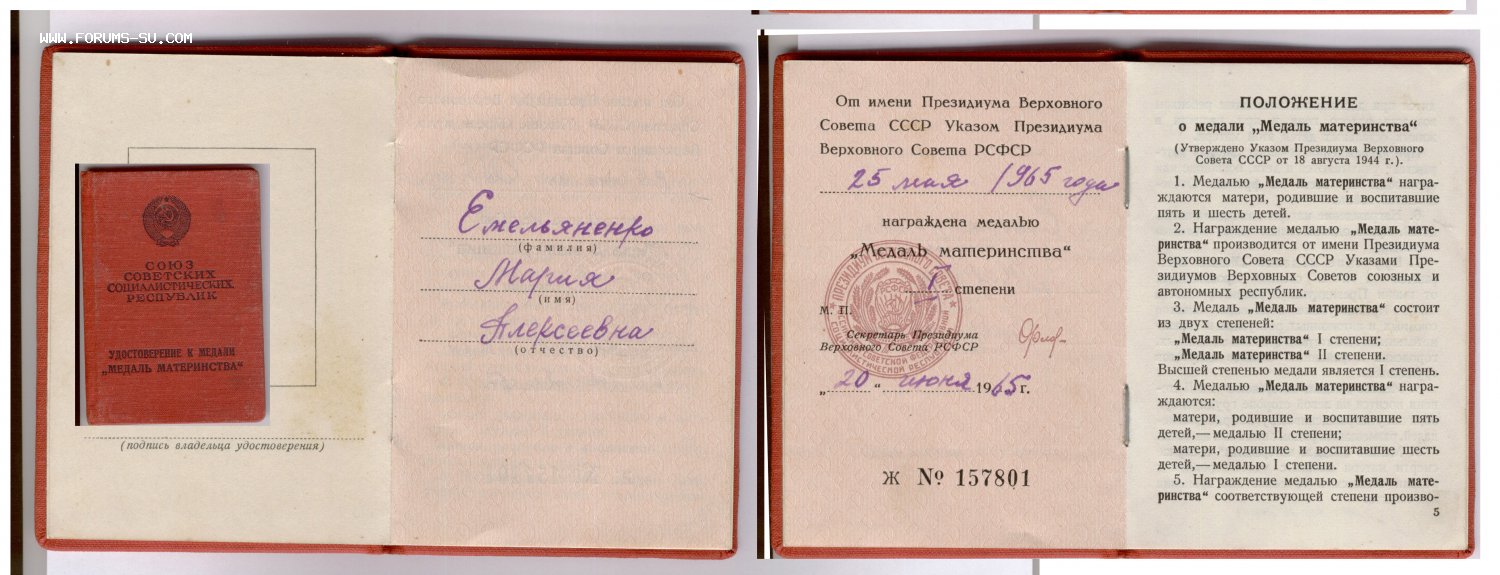 WWW.FORUMS-SU.COM
СОЮЗ
СОВЕТСКИХ
СОЦИАЛИСТИЧЕСКИХ
РЕСПУБЛИК
УДОСТОВЕРЕНИЕ К МЕДАЛИ
„МЕДАЛЬ МАТЕРИНСТВА“
(подпись владельца удостоверения)
Емельяненко
(фамилия)
Мария
(имя)
Алексеевна
(отчество)
От имени Президиума Верховного
Совета СССР Указом Президиума
Верховного Совета РСФСР
25 мая 1965 года
награждена медалью
„Медаль материнства“
I степени
М. П.
Секретарь Президиума
Верховного Совета РСФСР
„20“ июня 1965 г.
Ж № 157801
ПОЛОЖЕНИЕ
о медали „Медаль материнства“
(Утверждено Указом Президиума Верховного
Совета СССР от 18 августа 1944 г.).
1. Медалью „Медаль материнства“ награ-
ждаются матери, родившие и воспитавшие
пять и шесть детей.
2. Награждение медалью „Медаль мате-
ринства“ производится от имени Президиума
Верховного Совета СССР Указами Пре-
зидиумов Верховных Советов союзных и
автономных республик.
3. Медаль „Медаль материнства“ состоит
из двух степеней:
„Медаль материнства“ I степени;
„Медаль материнства“ II степени.
Высшей степенью медали является I степень.
4. Медалью „Медаль материнства“ награ-
ждаются:
матери, родившие и воспитавшие пять
детей,— медалью II степени;
матери, родившие и воспитавшие шесть
детей,— медалью I степени.
5. Награждение медалью „Медаль мате-
ринства“ соответствующей степени произво-
5